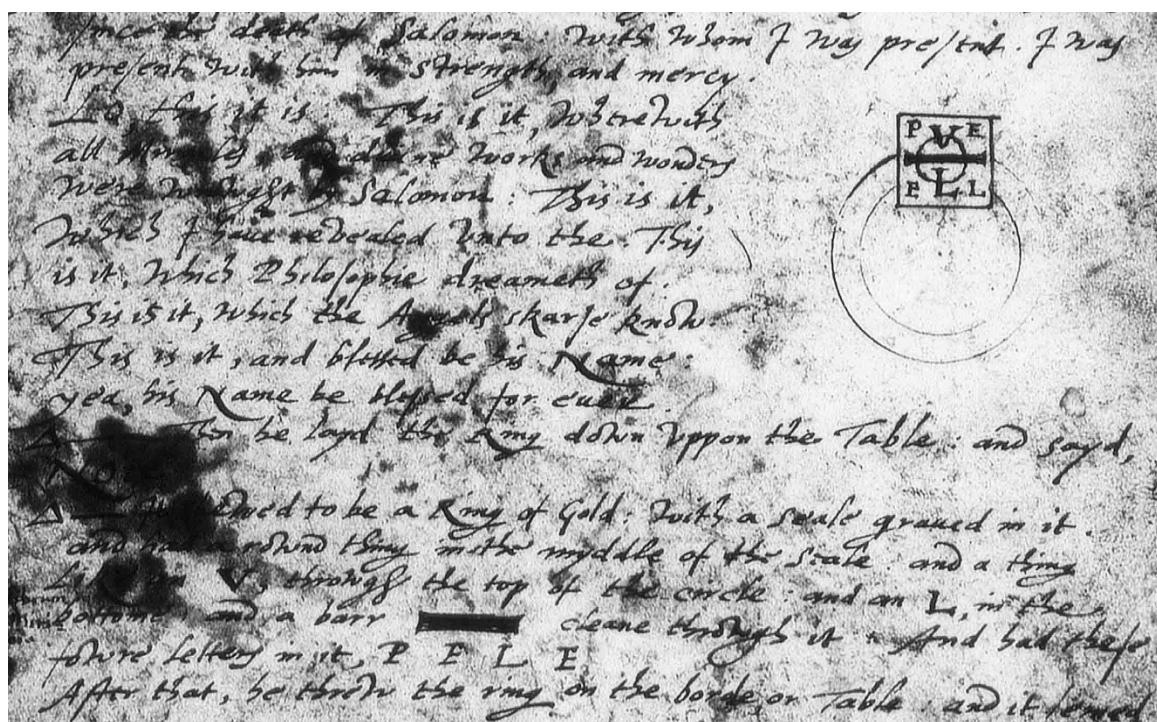 since the death of Salomon: With whom I was present. I was
present with him in strength, and mercy.
Lo, this it is. This is it, wherewith
all Miracles, and divine works and wonders
were wrought by Salomon: This is it,
which I have revealed unto the. This
is it, which Philosophie dreameth of.
This is it, which the Angels skarse know.
This is it, and blessed be his Name:
yea, his Name be blessed for euer.
Δ Then he layd the Ring down vppon the Table: and sayd,
Note
Δ It shewed to be a Ring of Gold: with a seale graued in it:
and had a rownd thing in the myddle of the seale: and a thing
like an V, through the top of the circle: and an L, in the
bottome: and a barr cleane through it: And had these
fowre letters in it, P E L E.
After that, he threw the ring on the borde, or Table: and it semed
P V E
E L L